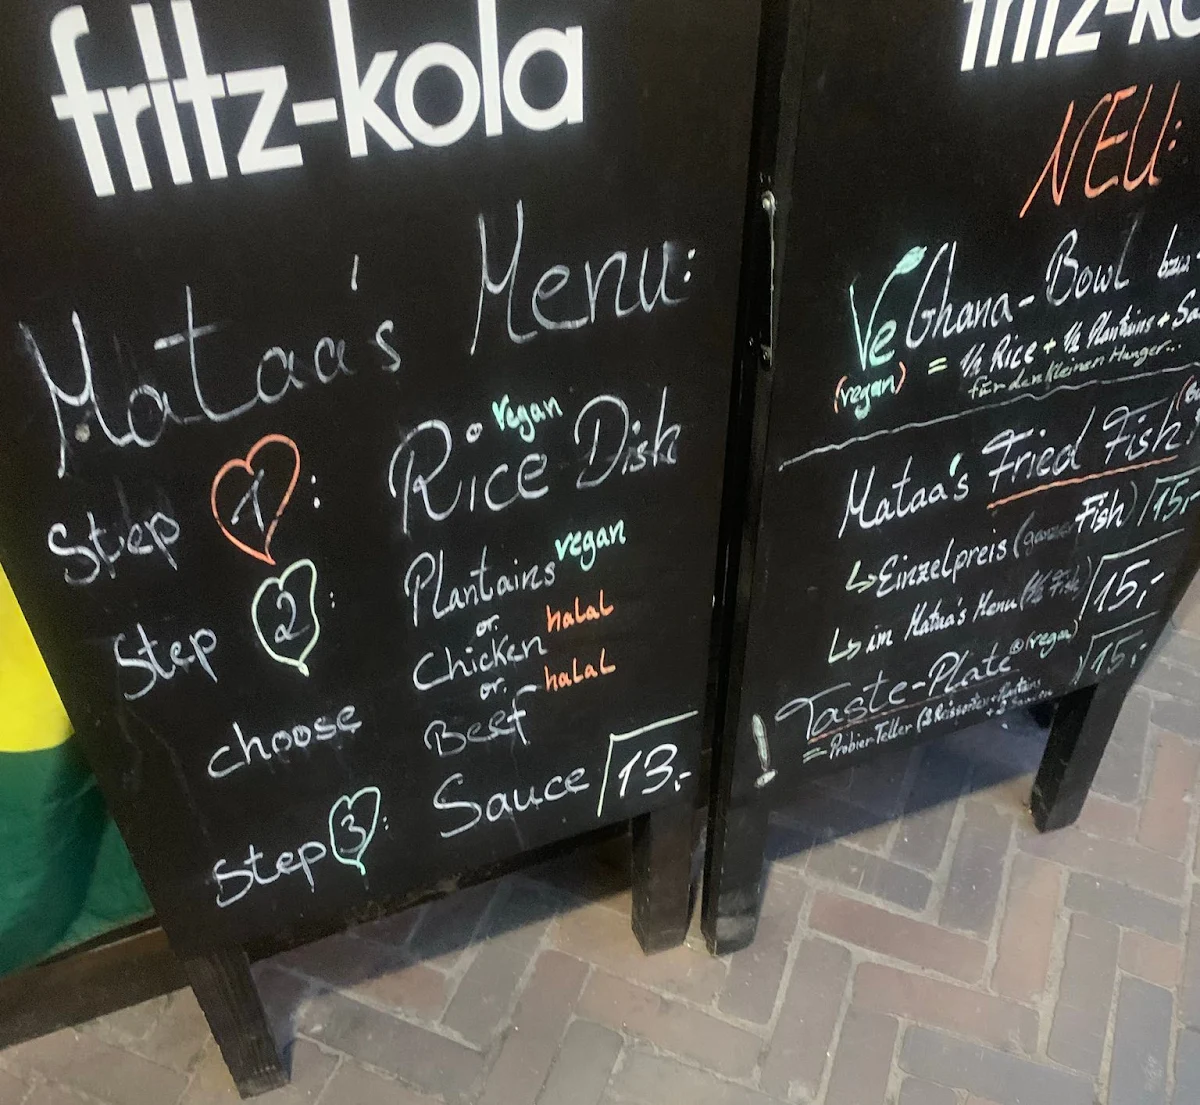 fritz-kola
Mataa's Menu:
Step 1: Rice Dish vegan
Step 2: Plantains vegan
or
Chicken halal
or
choose Beef halal
Step 3: Sauce 13,-
fritz-ko
NEU:
VeGhana-Bowl bzw
(vegan) = 1/2 Rice + 1/2 Plantains + Sa
für den kleinen Hunger...
Mataa's Fried Fish
↳ Einzelpreis (ganzer Fish) 15,
↳ im Mataa's Menu (1/2 Fish) 15,-
! Taste-Plate® (vegan) 15,-
= Probier-Teller (2 Reissorten + Plantains